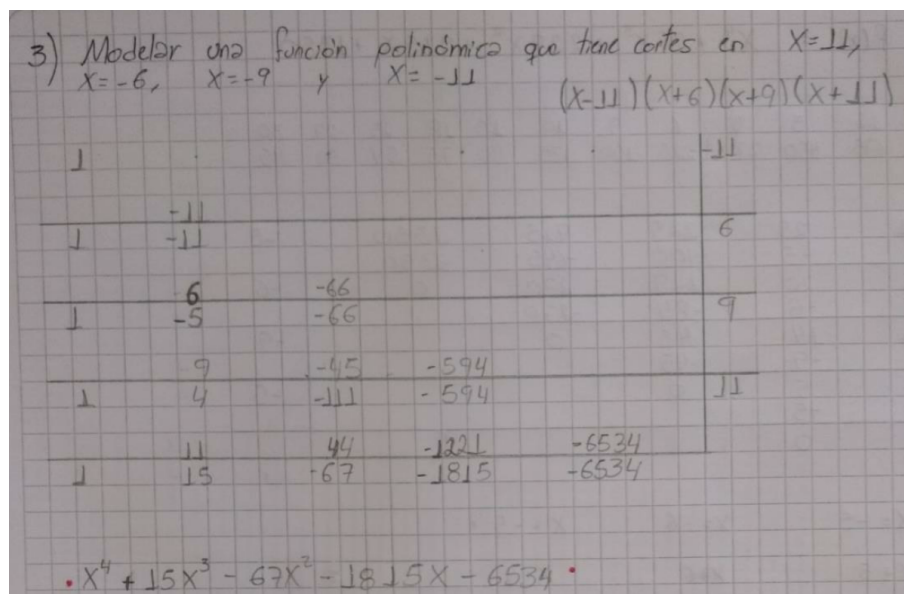 3) Modelar una función polinómica que tiene cortes en X=11,
X=-6, X=-9 y X=-11
(X-11)(X+6)(X+9)(X+11)
1 -11
-11
1 -11 6
6 -66
1 -5 -66 9
9 -45 -594
1 4 -111 -594 11
11 44 -1221 -6534
1 15 -67 -1815 -6534
. X⁴ + 15X³ - 67X² - 1815X - 6534 .